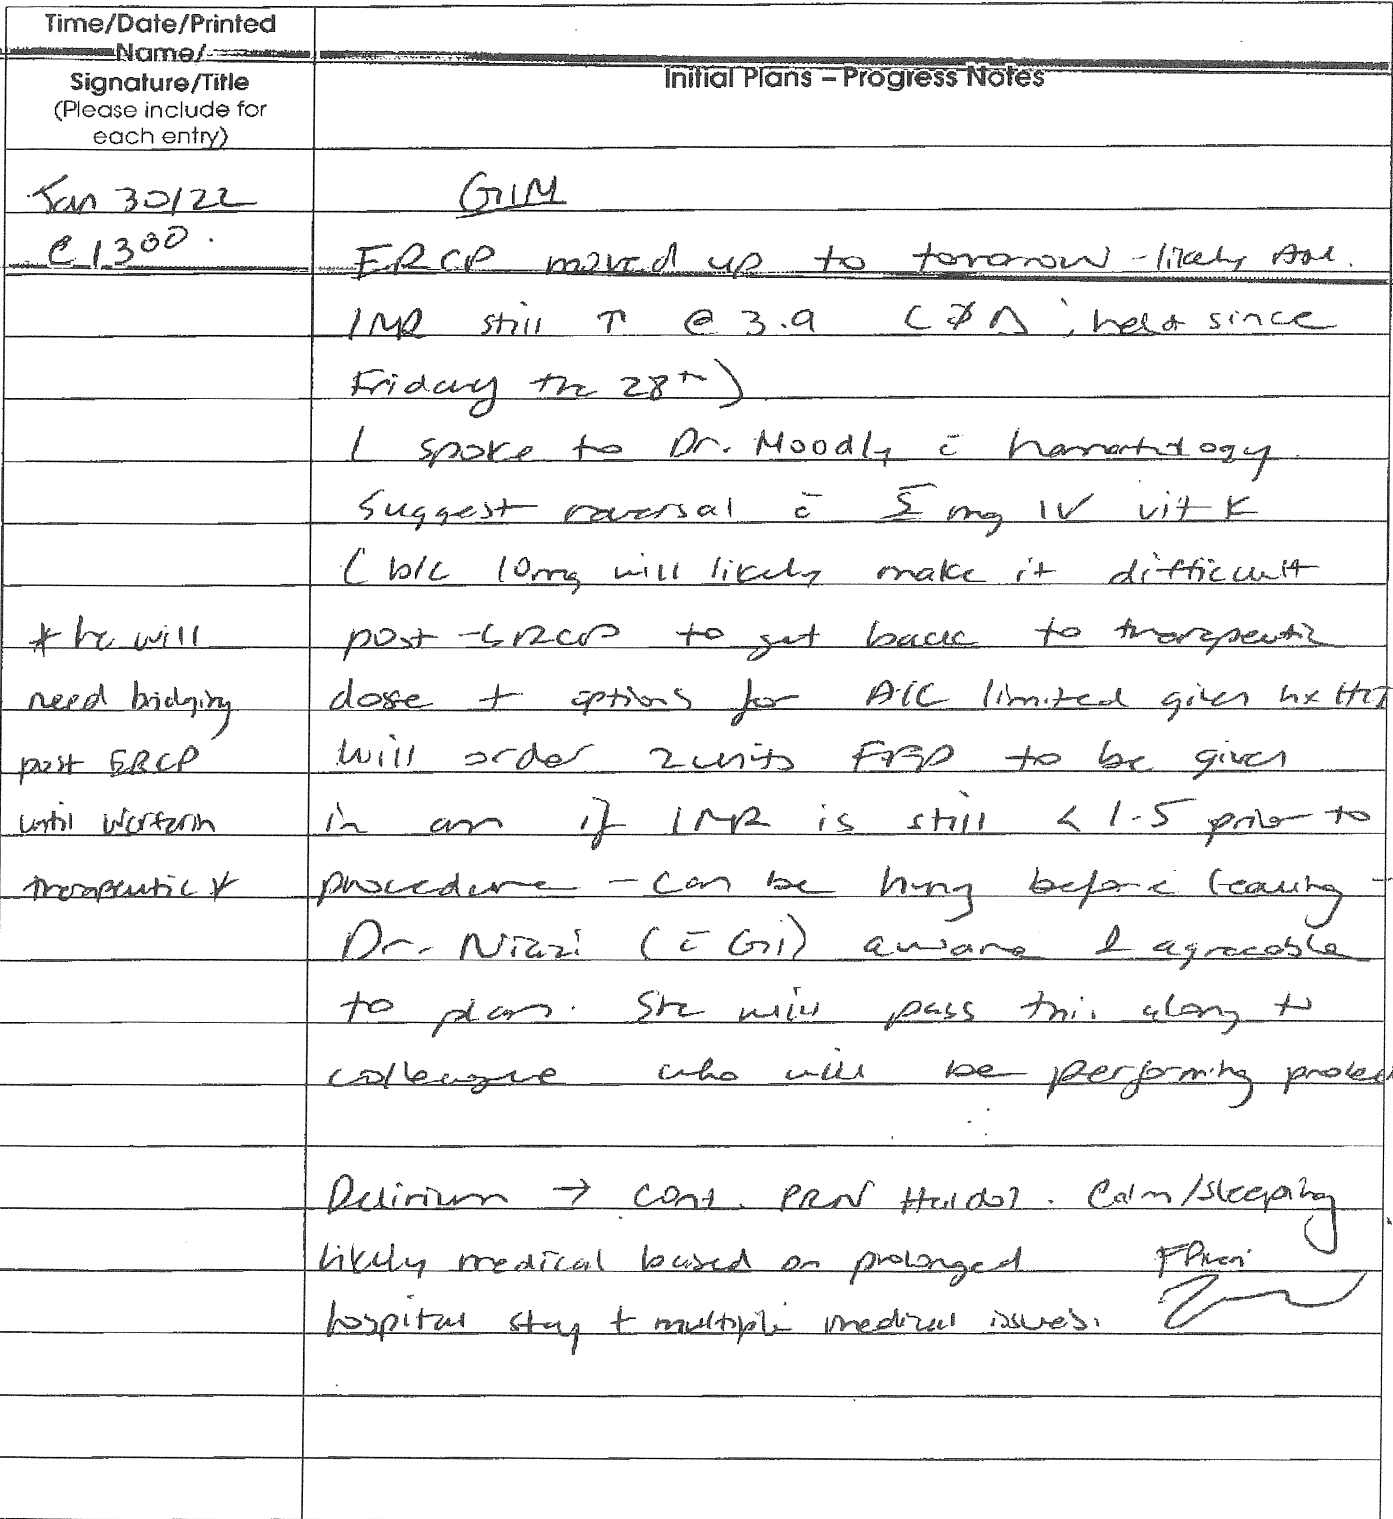 Time/Date/Printed
Name/
Signature/Title
(Please include for
each entry)
Initial Plans – Progress Notes
Jan 30/22
@ 1300.
GIM
ERCP moved up to tomorrow - likely AM.
INR still ↑ @ 3.9 (∅ Δ, held since
Friday the 28th)
I spoke to Dr. Moodly c̄ hematology.
Suggest reversal c̄ 5 mg IV vit K
(b/c 10mg will likely make it difficult
post-ERCP to get back to therapeutic
dose + options for A/C limited given hx HIT
will order 2 units FFP to be given
in am if INR is still < 1.5 prior to
procedure - can be hung before leaving -
Dr. Niazi (c̄ GI) aware & agreeable
to plan. She will pass this along to
colleague who will be performing
* he will
need bridging
post ERCP
until warfarin
therapeutic *
Delirium → cont. PRN Haldol. Calm/sleeping
likely medical based on prolonged
hospital stay + multiple medical issues.